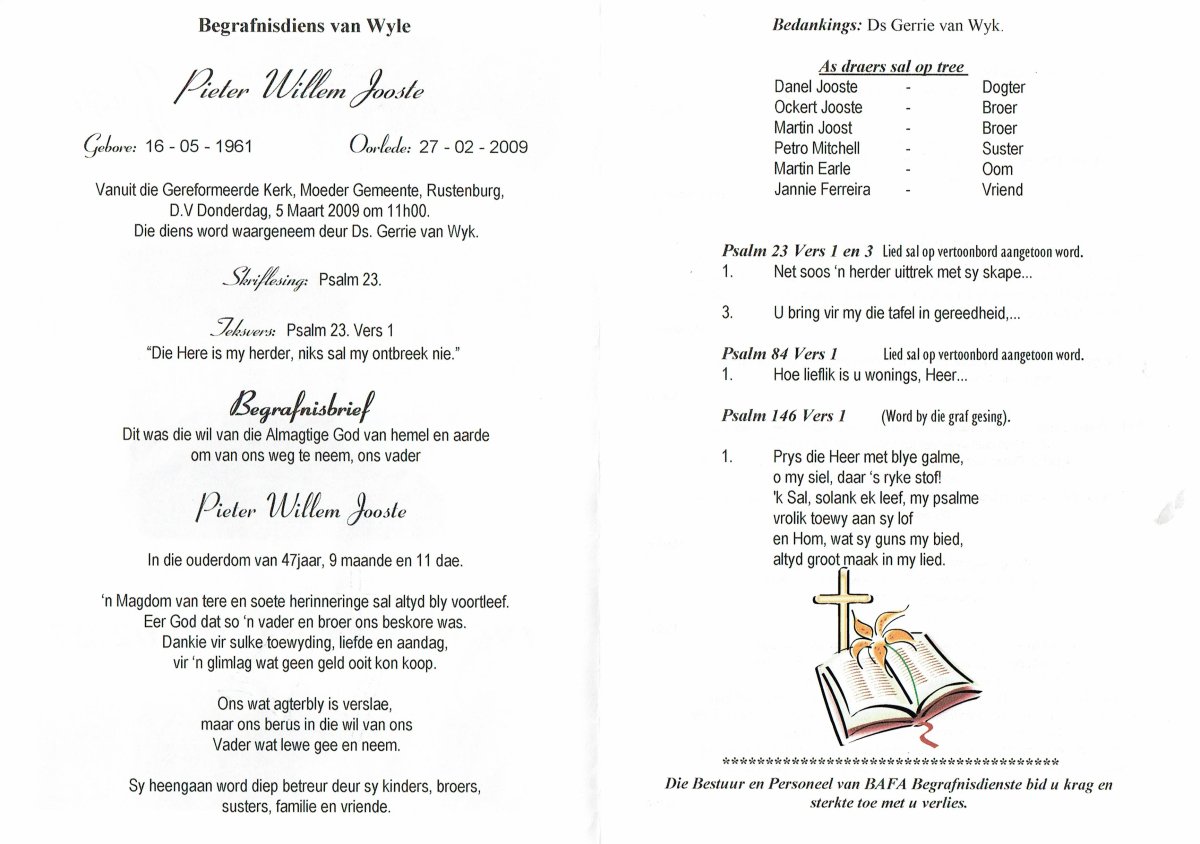 Begrafnisdiens van Wyle
Pieter Willem Jooste
Gebore: 16 - 05 - 1961 Oorlede: 27 - 02 - 2009
Vanuit die Gereformeerde Kerk, Moeder Gemeente, Rustenburg,
D.V Donderdag, 5 Maart 2009 om 11h00.
Die diens word waargeneem deur Ds. Gerrie van Wyk.
Skriflesing: Psalm 23.
Teksvers: Psalm 23. Vers 1
“Die Here is my herder, niks sal my ontbreek nie.”
Begrafnisbrief
Dit was die wil van die Almagtige God van hemel en aarde
om van ons weg te neem, ons vader
Pieter Willem Jooste
In die ouderdom van 47jaar, 9 maande en 11 dae.
‘n Magdom van tere en soete herinneringe sal altyd bly voortleef.
Eer God dat so ‘n vader en broer ons beskore was.
Dankie vir sulke toewyding, liefde en aandag,
vir ‘n glimlag wat geen geld ooit kon koop.
Ons wat agterbly is verslae,
maar ons berus in die wil van ons
Vader wat lewe gee en neem.
Sy heengaan word diep betreur deur sy kinders, broers,
susters, familie en vriende.
Bedankings: Ds Gerrie van Wyk.
As draers sal op tree
Danel Jooste - Dogter
Ockert Jooste - Broer
Martin Joost - Broer
Petro Mitchell - Suster
Martin Earle - Oom
Jannie Ferreira - Vriend
Psalm 23 Vers 1 en 3 Lied sal op vertoonbord aangetoon word.
1. Net soos ‘n herder uittrek met sy skape...
3. U bring vir my die tafel in gereedheid,...
Psalm 84 Vers 1 Lied sal op vertoonbord aangetoon word.
1. Hoe lieflik is u wonings, Heer...
Psalm 146 Vers 1 (Word by die graf gesing).
1. Prys die Heer met blye galme,
o my siel, daar ‘s ryke stof!
'k Sal, solank ek leef, my psalme
vrolik toewy aan sy lof
en Hom, wat sy guns my bied,
altyd groot maak in my lied.
***************************************
Die Bestuur en Personeel van BAFA Begrafnisdienste bid u krag en
sterkte toe met u verlies.